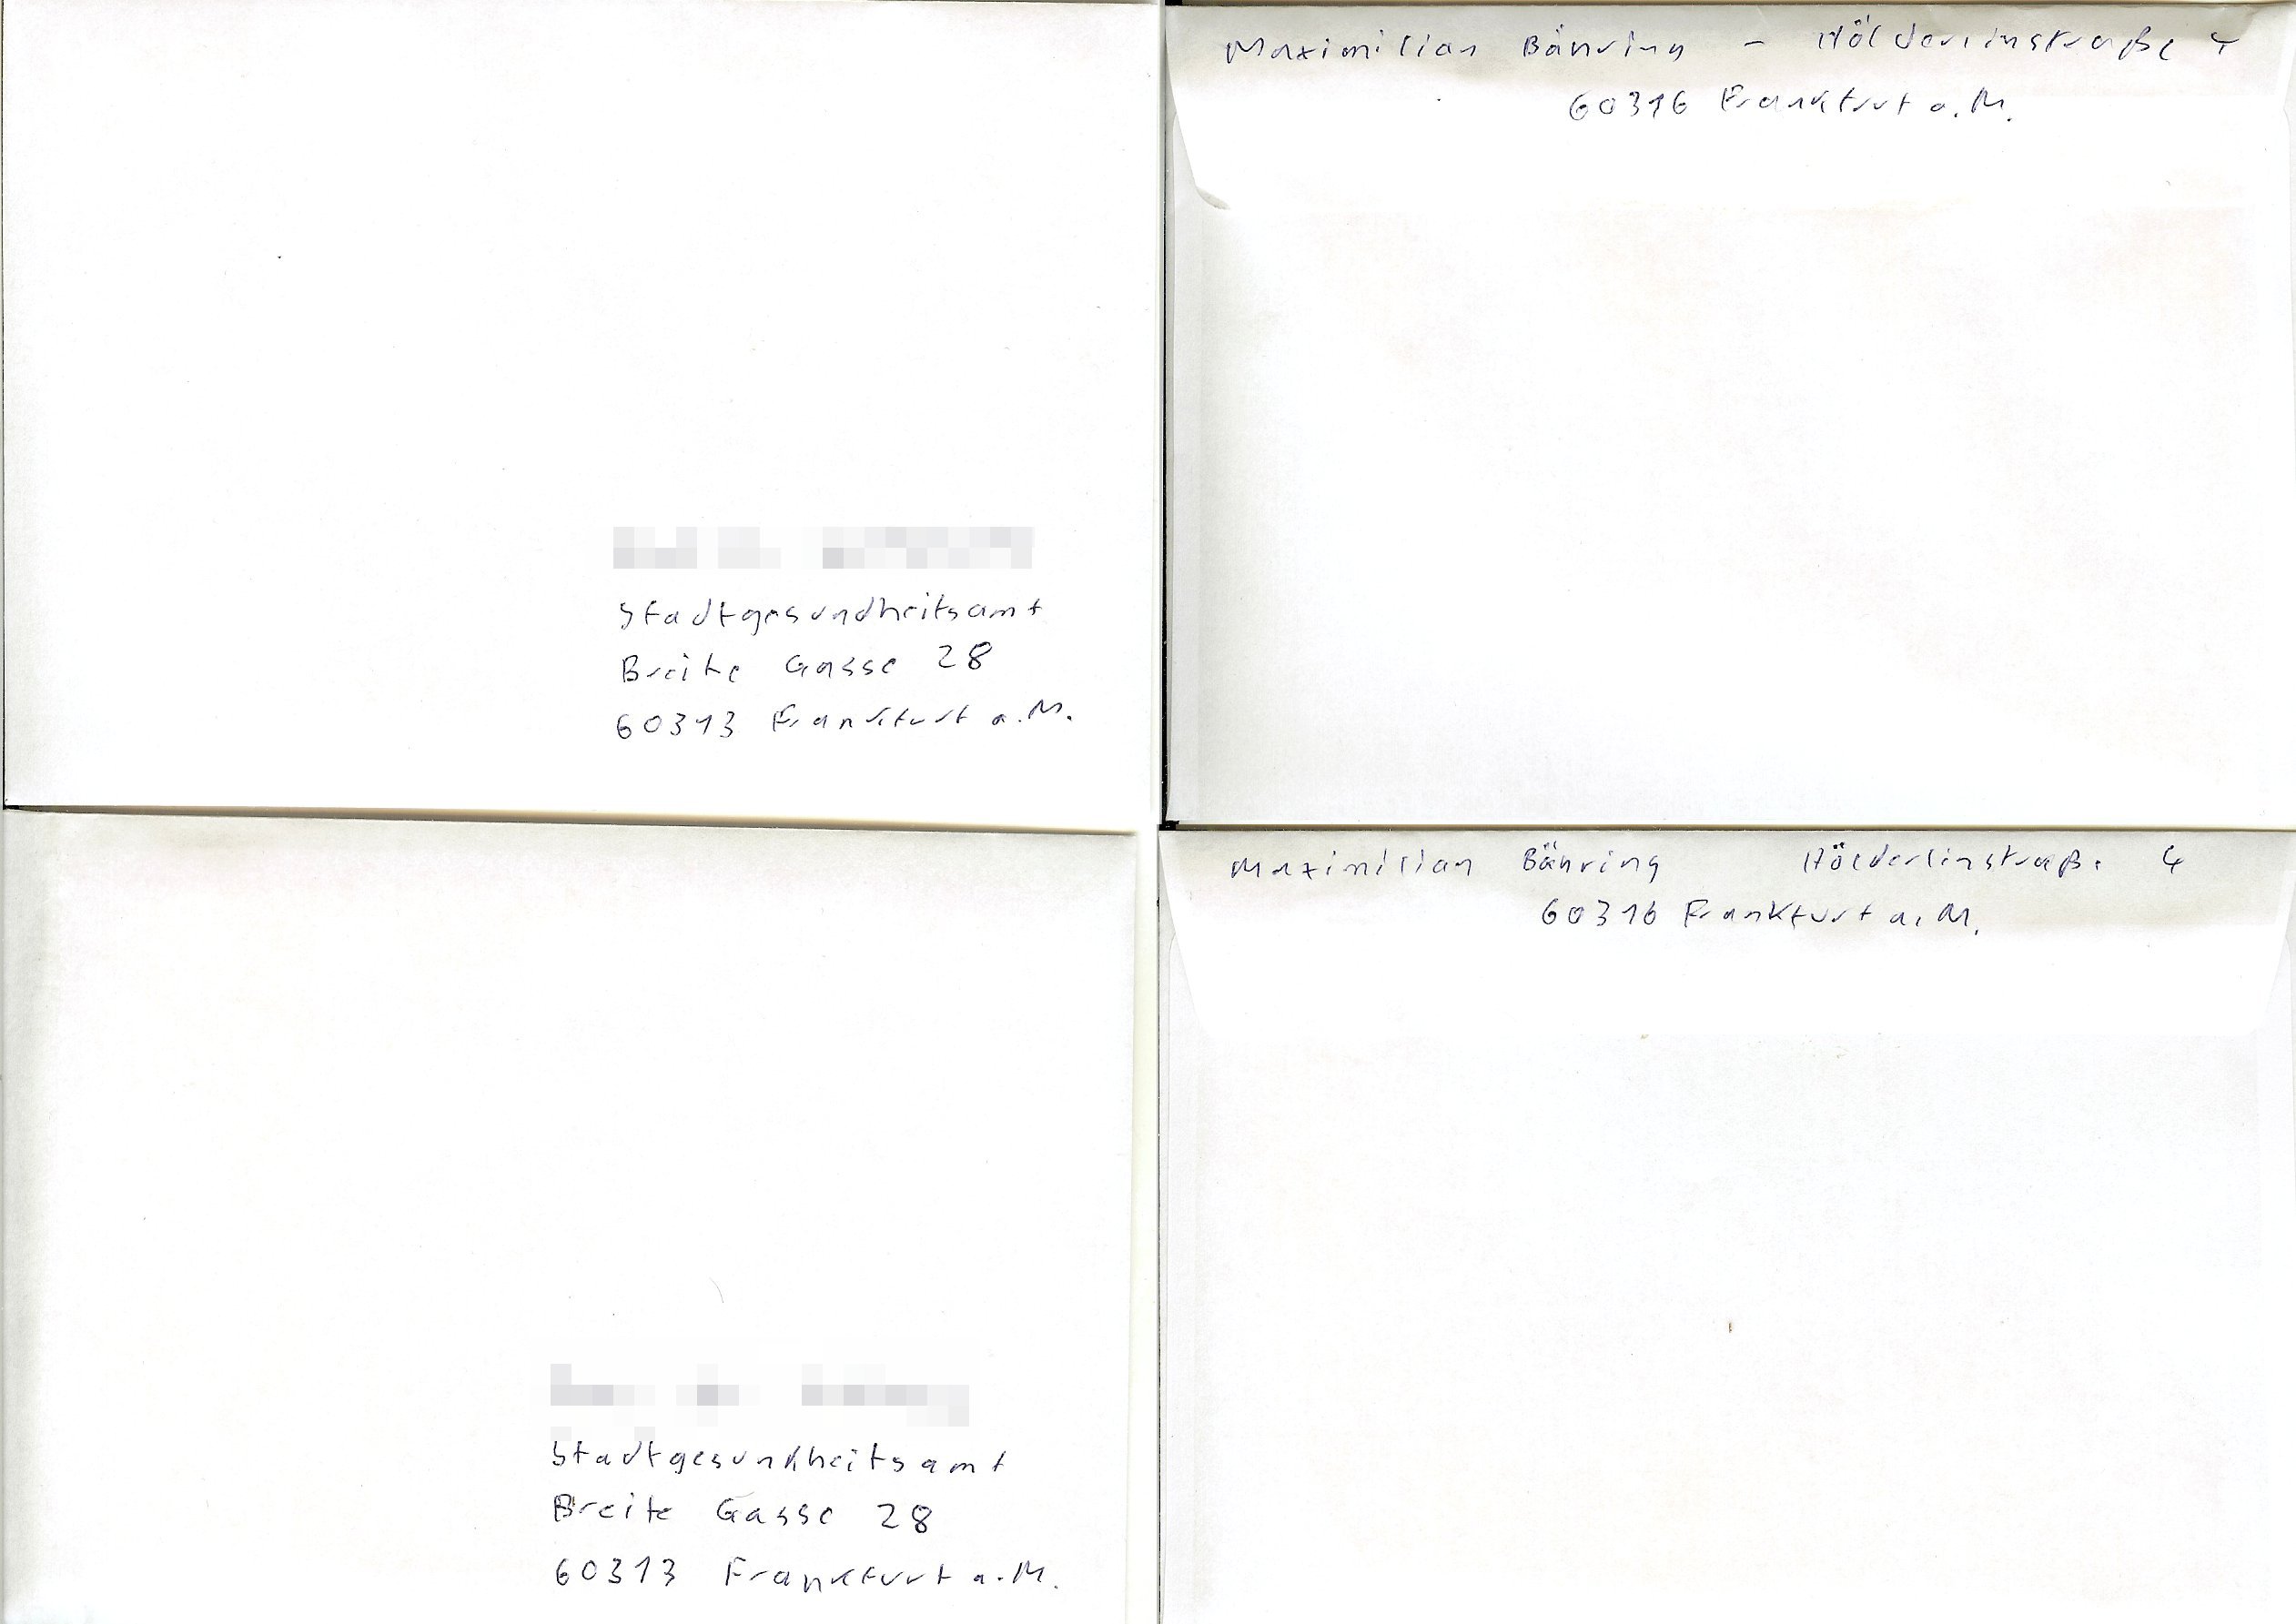 Maximilian Bähring - Hölderlinstraße 4
60316 Frankfurt a.M.
Stadtgesundheitsamt
Breite Gasse 28
60313 Frankfurt a.M.
Maximilian Bähring Hölderlinstraße 4
60316 Frankfurt a.M.
Stadtgesundheitsamt
Breite Gasse 28
60313 Frankfurt a.M.